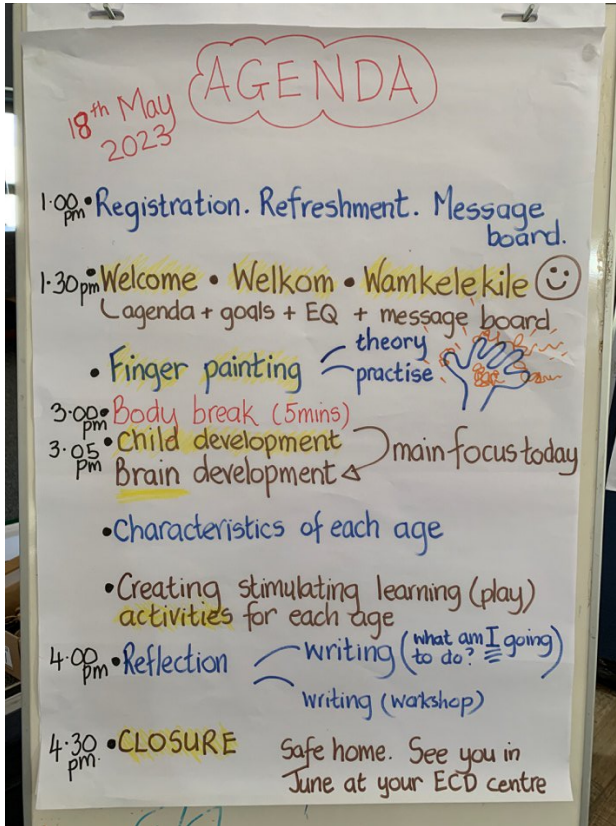 AGENDA
18th May
2023
1·00 pm • Registration. Refreshment. Message
board.
1·30pm • Welcome • Welkom • Wamkelekile
agenda + goals + EQ + message board
• Finger painting
theory
practise
3·00 pm • Body break (5mins)
3·05 pm • Child development
Brain development
main focus today
• Characteristics of each age
• Creating stimulating learning (play)
activities for each age
4·00 pm • Reflection
writing (what am I going
to do?)
writing (workshop)
4·30 pm. • CLOSURE
Safe home. See you in
June at your ECD centre